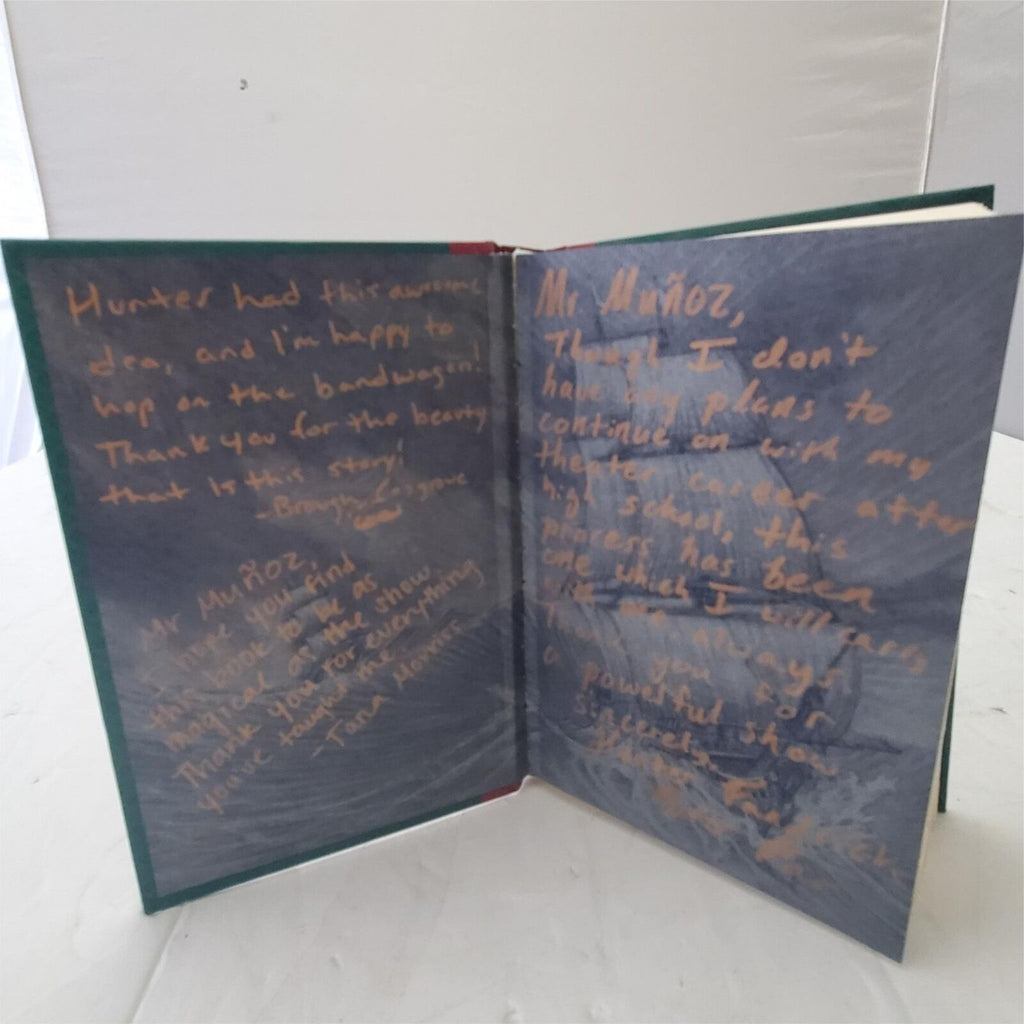 Hunter had this awesome
idea, and I'm happy to
hop on the bandwagon!
Thank you for the beauty
that is this story!
-Brough Cosgrove
Mr Muñoz,
I hope you find
this book to be as
magical as the show.
Thank you for everything
you've taught me
-Tana
Mr Muñoz,
Though I don't
have any plans to
continue on with my
theater career after
high school, this
process has been
one which I will carry
with me always
Thank you for
a powerful show
Sincerely,
Hunter